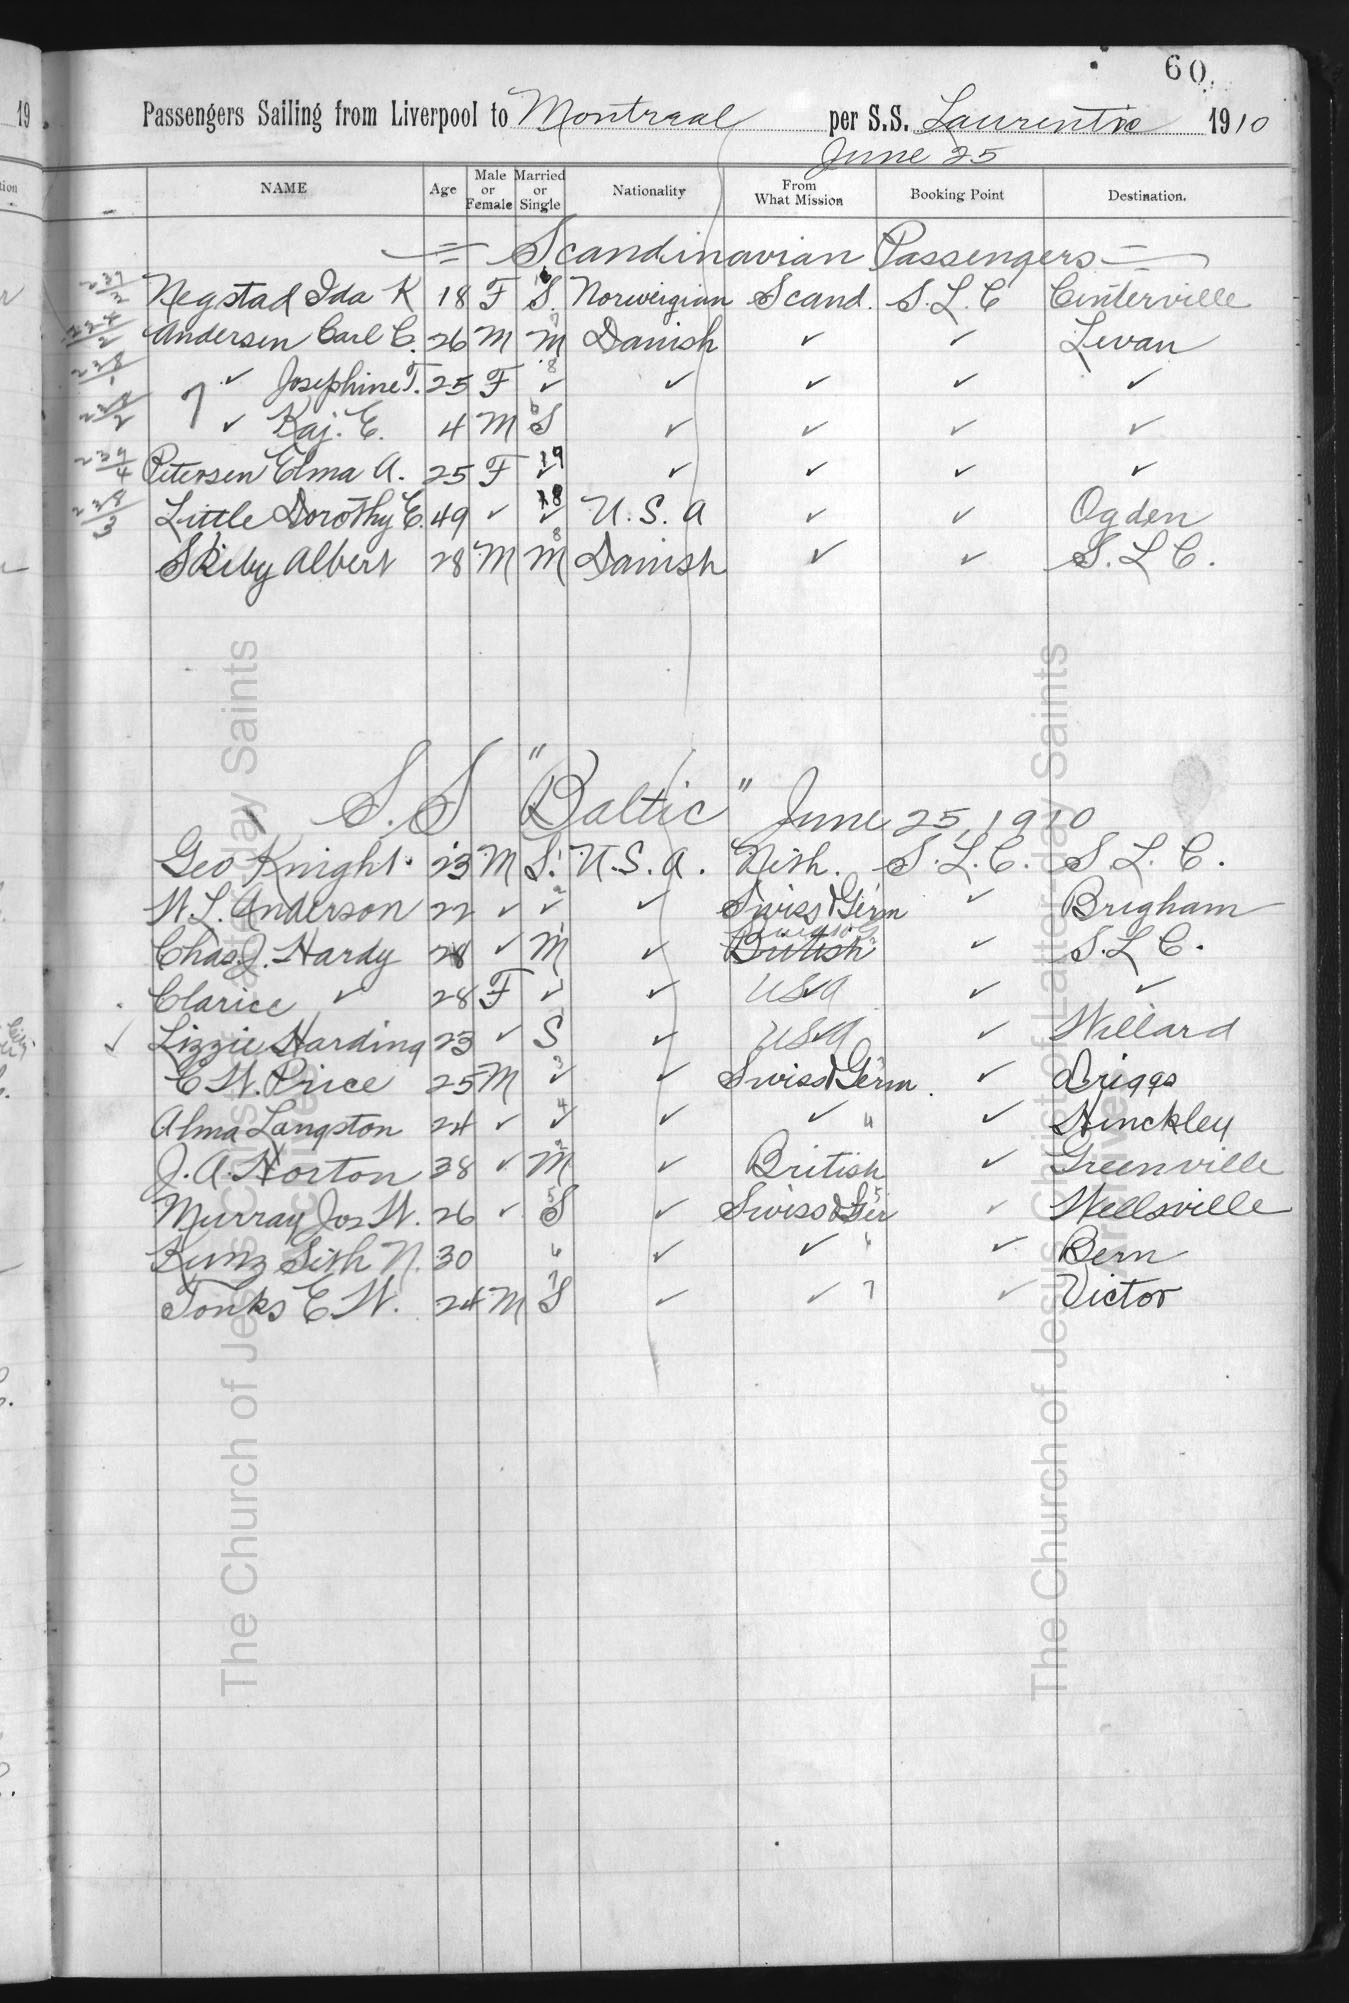 60.
19
Passengers Sailing from Liverpool to Montreal per S.S. Laurentic 1910
June 25
tion
NAME Age Male or Female Married or Single Nationality From What Mission Booking Point Destination.
= Scandinavian Passengers =
237/2 Negstad Ida K 18 F S. Norweigian Scand. S.L.C Cinterville
224/2 Andersen Carl C. 26 M M Danish ✓ ✓ Levan
238/1 ✓ Josephine T. 25 F ✓ 8 ✓ ✓ ✓ ✓
7 ✓ Kaj. E. 4 M S ✓ ✓ ✓ ✓
239/4 Petersen Elma A. 25 F ✓ 19 ✓ ✓ ✓ ✓
238/3 Little Dorothy E. 49 ✓ ✓ 18 U.S.A ✓ ✓ Ogden
Skiby Albert 28 M M 8 Danish ✓ ✓ S.L.C.
S.S "Baltic" June 25, 1910
Geo Knight 23 M S. 1 U.S.A. Neth. S.L.C. S.L.C.
W.L. Anderson 22 ✓ ✓ 2 ✓ Swiss & Germ ✓ Brigham
Chas. J. Hardy 28 ✓ M 1 ✓ British ✓ S.L.C.
Clarice ✓ 28 F ✓ ✓ USA ✓ ✓
✓ Lizzie Harding 23 ✓ S ✓ USA ✓ Willard
E W. Price 25 M ✓ 3 ✓ Swiss & Germ. ✓ Driggs
Alma Langston 24 ✓ ✓ 4 ✓ ✓ 4 ✓ Hinckley
J. A. Horton 38 ✓ M 2 ✓ British ✓ Greenville
Murray Jos W. 26 ✓ S 5 ✓ Swiss & Ger 5 ✓ Wellsville
Kunz Seth N. 30 6 ✓ ✓ 6 ✓ Bern
Tonks E W. 24 M S 7 ✓ ✓ 7 ✓ Victor
The Church of Jesus Christ of Latter-day Saints
The Church of Jesus Christ of Latter-day Saints